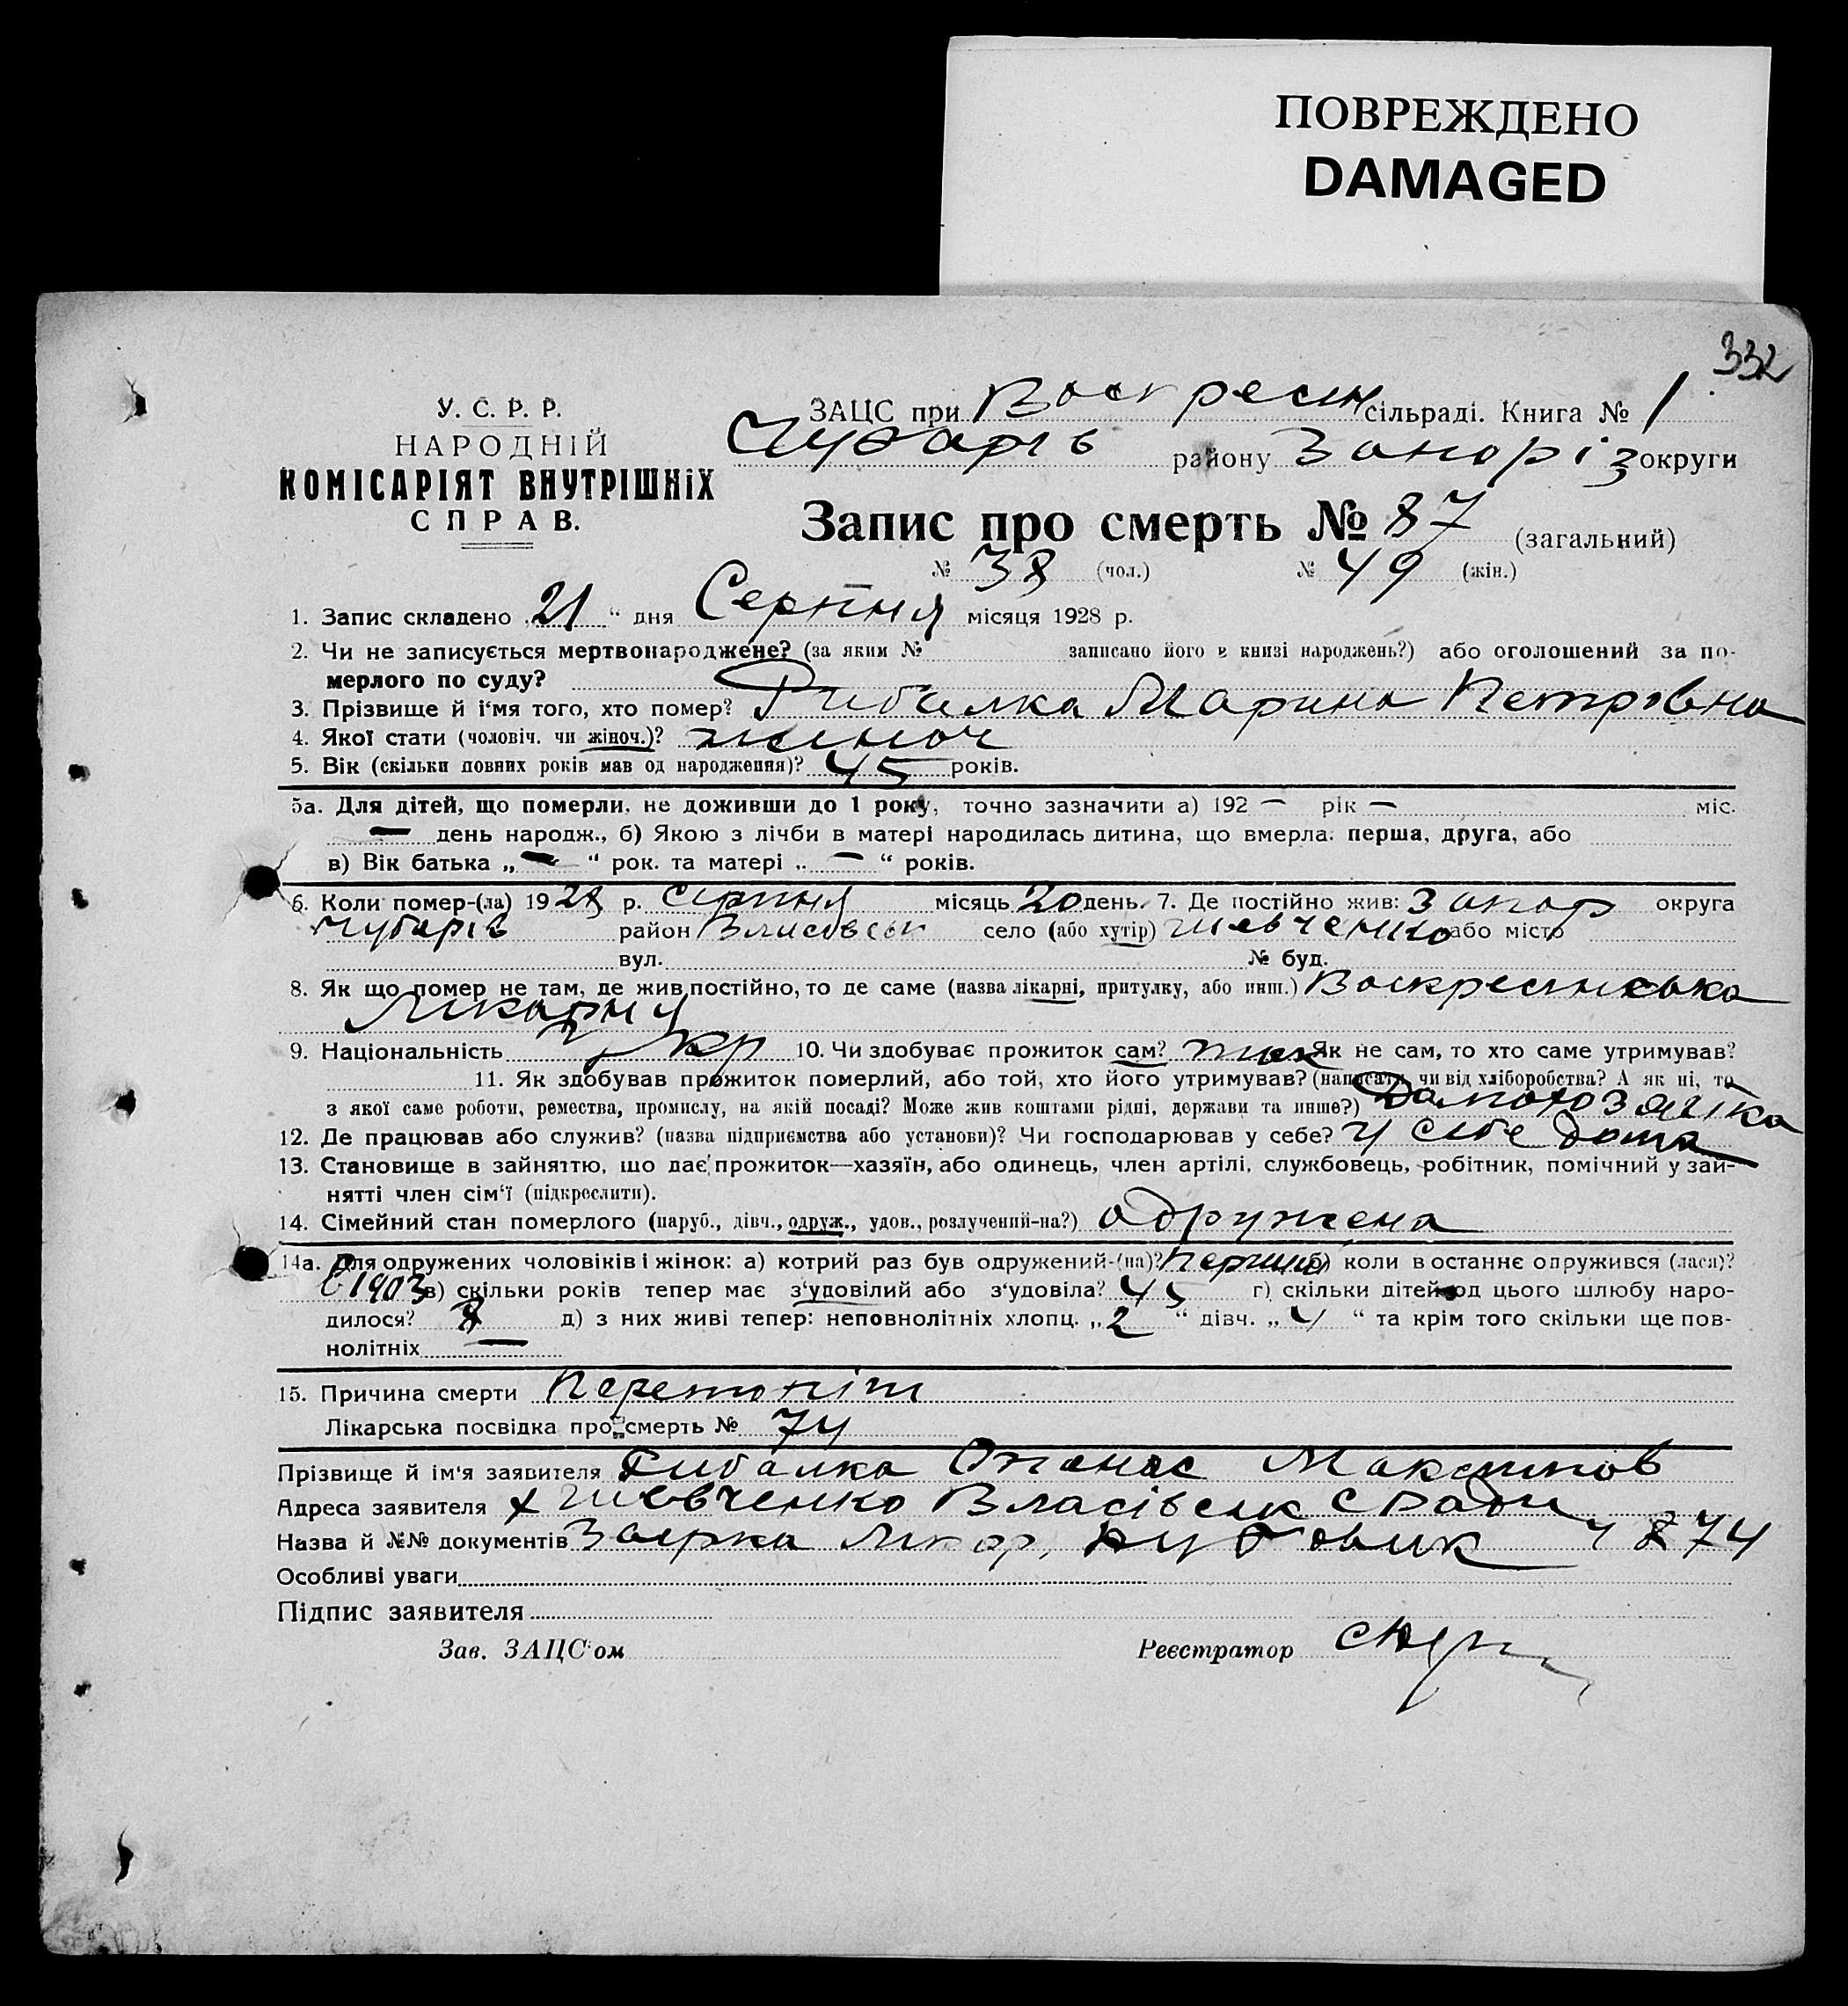 ПОВРЕЖДЕНО
DAMAGED
332
У. С. Р. Р.
НАРОДНІЙ
КОМІСАРІЯТ ВНУТРІШНІХ
СПРАВ.
ЗАЦС при Воскресен сільраді. Книга № 1
Чубарів району Запоріз округи
Запис про смерть № 87 (загальний)
№ 38 (чол.) № 49 (жін.)
1. Запис складено „21“ дня Серпня місяця 1928 р.
2. Чи не записується мертвонароджене? (за яким № записано його в книзі народжень?) або оголошений за по-
мерлого по суду?
3. Прізвище й і'мя того, хто помер? Рибалка Марина Петрівна
4. Якої стати (чоловіч. чи жіноч.)? жіноч
5. Вік (скільки повних років мав од народження)? 45 років.
5а. Для дітей, що померли, не доживши до 1 року, точно зазначити а) 192 — рік — міс.
— день народж., б) Якою з лічби в матері народилась дитина, що вмерла: перша, друга, або
в) Вік батька „—“ рок. та матері „—“ років.
6. Коли помер-(ла) 1928 р. Серпня місяць 20 день. 7. Де постійно жив: Запор округа
Чубарів район Власовськ село (або хутір) Шевченко або місто
вул. № буд.
8. Як що помер не там, де жив постійно, то де саме (назва лікарні, притулку, або инш.) Воскресенська
Лікарня
9. Національність Укр 10. Чи здобуває прожиток сам? так Як не сам, то хто саме утримував?
11. Як здобував прожиток померлий, або той, хто його утримував? (написати, чи від хліборобства? А як ні, то
з якої саме роботи, ремества, промислу, на якій посаді? Може жив коштами рідні, держави та инше?) Дамохозяїка
12. Де працював або служив? (назва підприємства або установи)? Чи господарював у себе? У себе дома
13. Становище в зайняттю, що дає прожиток—хазяїн, або одинець, член артілі, службовець, робітник, помічний у зай-
нятті член сім'ї (підкреслити).
14. Сімейний стан померлого (паруб., дівч., одруж., удов., розлучений-на?) одружена
14а. Для одружених чоловіків і жінок: а) котрий раз був одружений-(на)? перший б) коли востаннє одружився (лася)?
в 1903 в) скільки років тепер має з'удовілий або з'удовіла? 45 г) скільки дітей од цього шлюбу наро-
дилося? 8 д) з них живі тепер: неповнолітніх хлопц. „2“ дівч. „4“ та крім того скільки ще пов-
нолітніх —
15. Причина смерти Перетоніт
Лікарська посвідка про смерть № 74
Прізвище й ім'я заявителя Рибалка Опанас Максимов
Адреса заявителя х Шевченко Власівськ с Ради
Назва й №№ документів 74
Особливі уваги
Підпис заявителя
Зав. ЗАЦС'ом Реєстратор